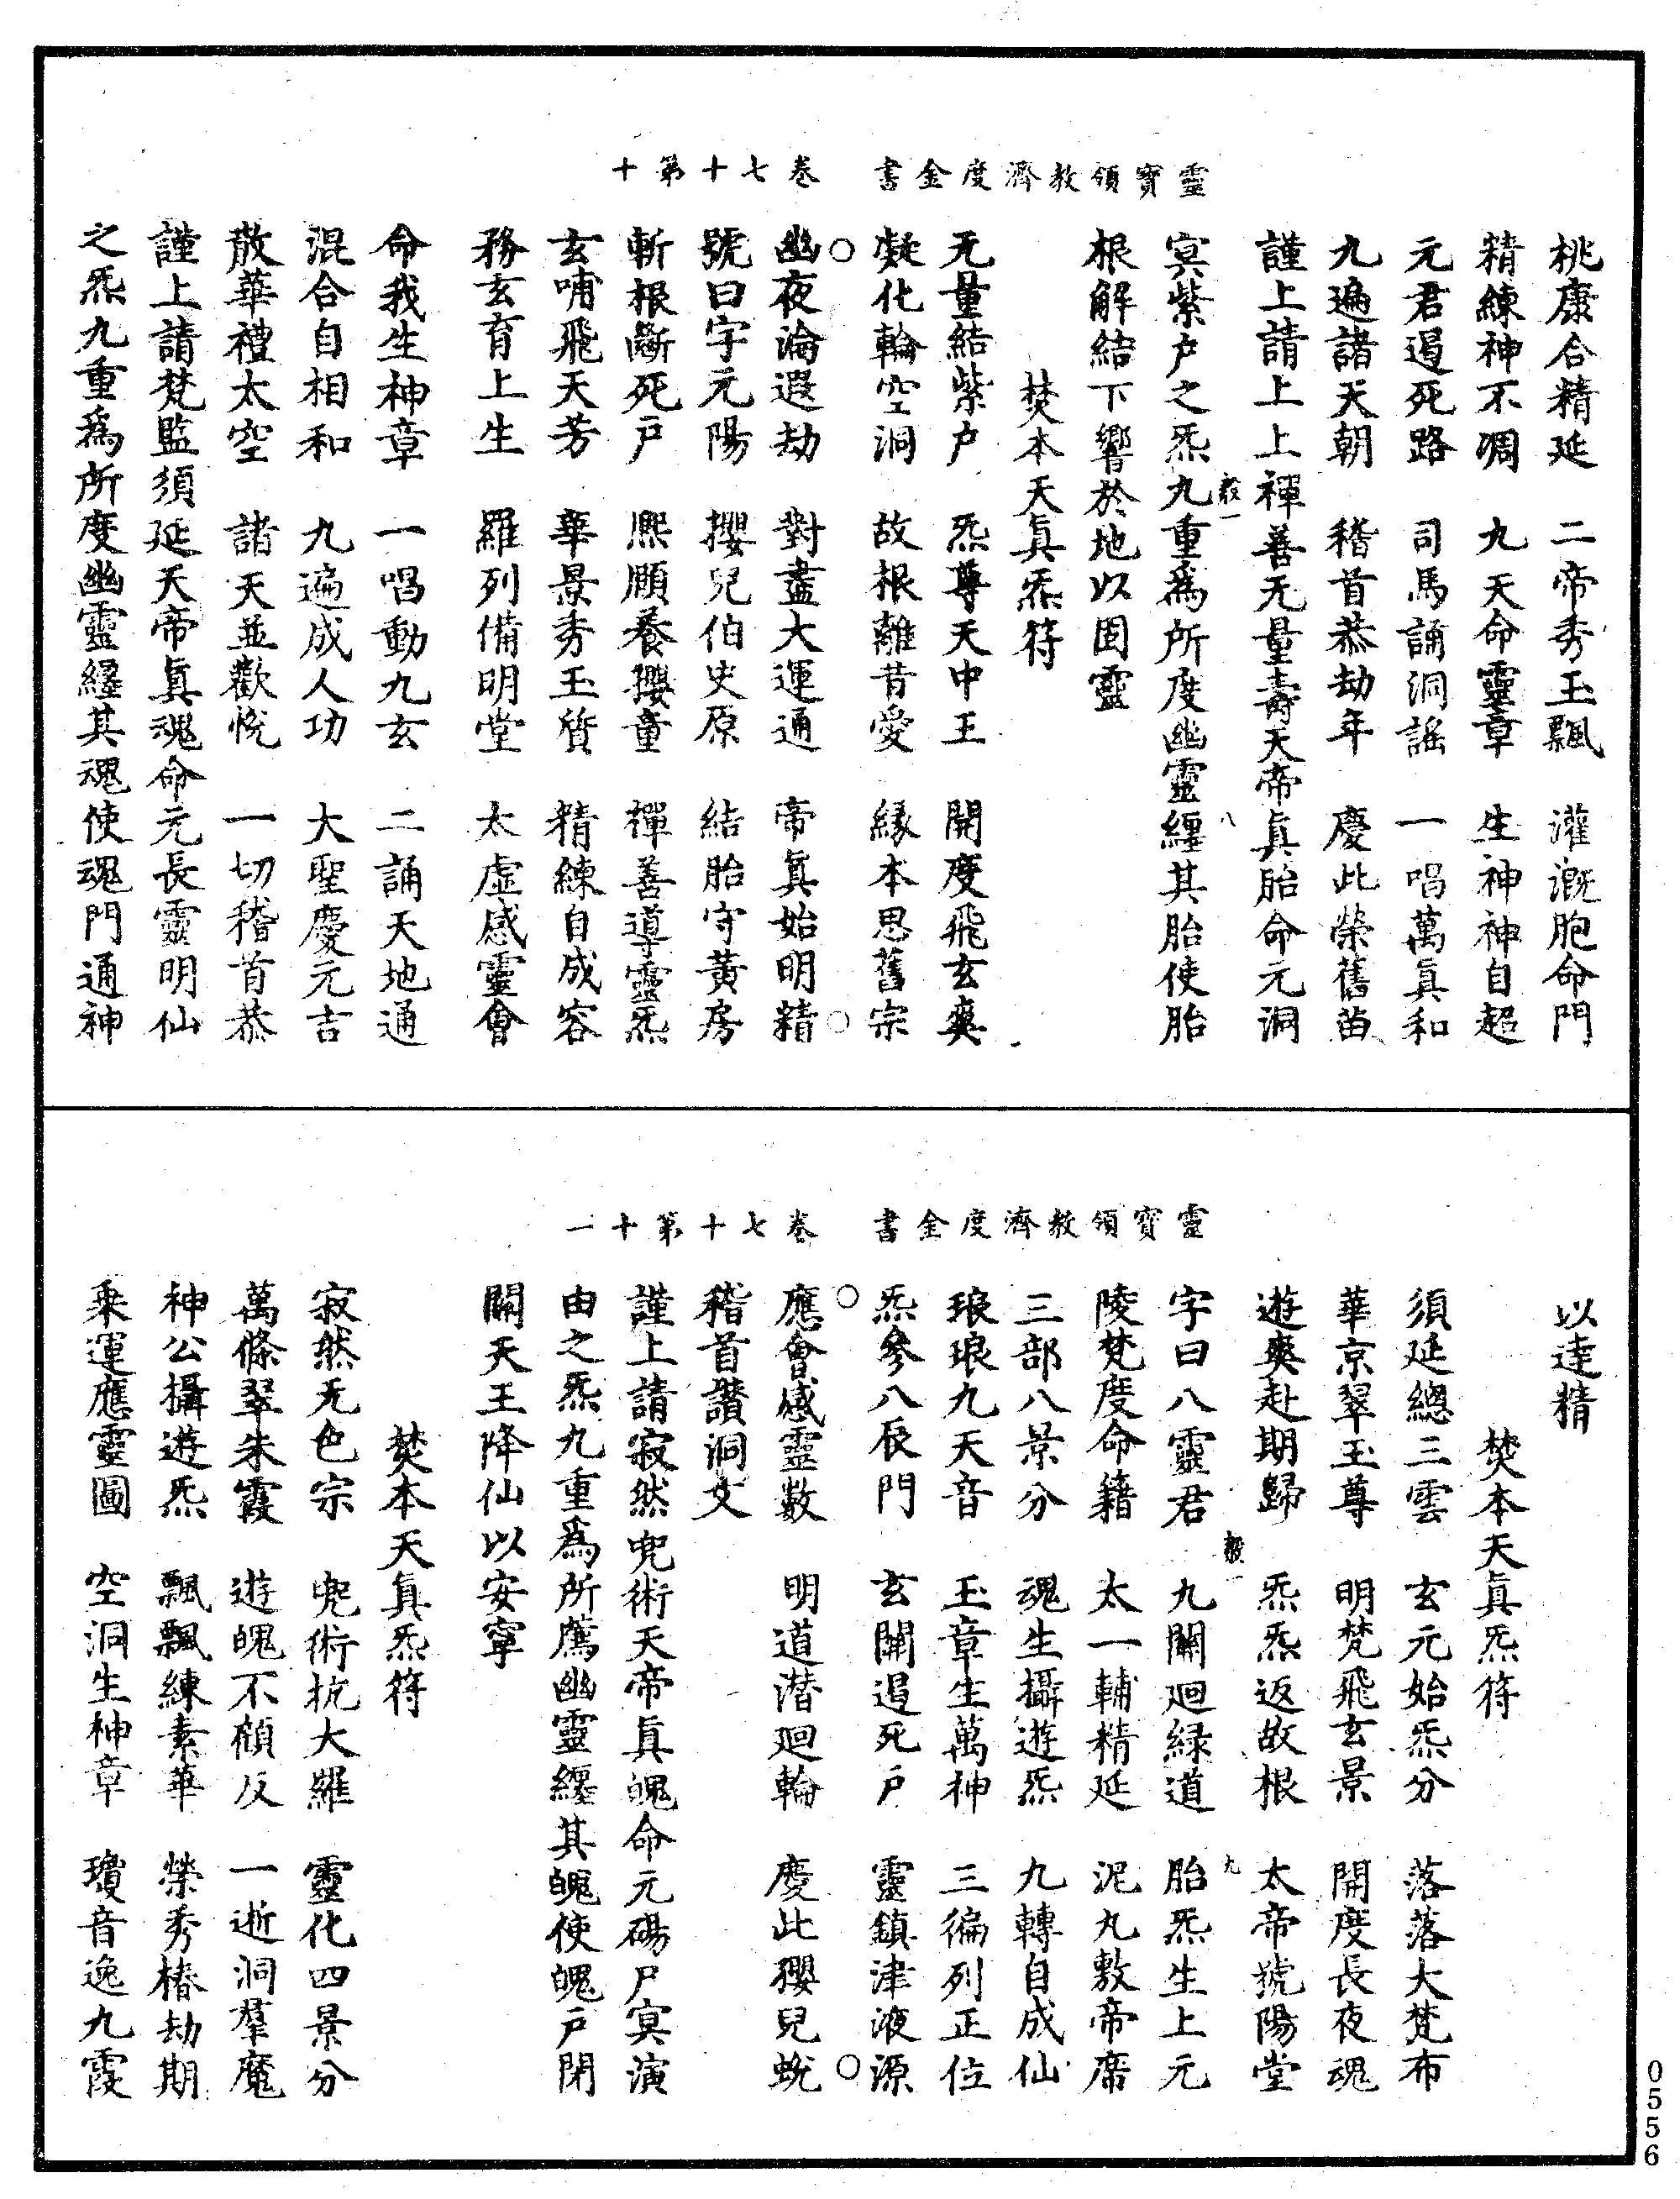 靈寶領教濟度金書　卷七十第十
桃康合精延　二帝秀玉飄　灌溉胞命門
精練神不凋　九天命靈章　生神神自超
元君遏死路　司馬誦洞謠　一唱萬真和
九遍諸天朝　稽首恭劫年　慶此榮舊苗
謹上請上上禪善无量壽天帝真胎命元洞
冥紫戶之炁九重爲所度幽靈纏其胎使胎
根解結下響於地以固靈
焚本天真炁符
无量結紫戶　炁尊天中王　開度飛玄爽
凝化輪空洞　故根離昔愛　緣本思舊宗
幽夜淪遐劫　對盡大運通　帝真始明精
號曰字元陽　攖兒伯史原　結胎守黃房
斬根斷死戶　熙願養攖童　禪善導靈炁
玄哺飛天芳　華景秀玉質　精練自成容
務玄育上生　羅列備明堂　太虛感靈會
命我生神章　一唱動九玄　二誦天地通
混合自相和　九遍成人功　大聖慶元吉
散華禮太空　諸天並歡悅　一切稽首恭
謹上請梵監須延天帝真魂命元長靈明仙
之炁九重爲所度幽靈纏其魂使魂門通神
靈寶領教濟度金書　卷七十第十一
以達精
焚本天真炁符
須延總三雲　玄元始炁分　落落大梵布
華京翠玉尊　明梵飛玄景　開度長夜魂
遊爽赴期歸　炁炁返故根　太帝號陽堂
字曰八靈君　九關迴綠道　胎炁生上元
陵梵度命籍　太一輔精延　泥丸敷帝席
三部八景分　魂生攝遊炁　九轉自成仙
琅琅九天音　玉章生萬神　三徧列正位
炁參八辰門　玄關遏死戶　靈鎮津液源
應會感靈數　明道潛迴輪　慶此攖兒蛻
稽首讚洞文
謹上請寂然兜術天帝真魄命元碭尸冥演
由之炁九重爲所薦幽靈纏其魄使魄戶閉
關天王降仙以安寧
焚本天真炁符
寂然无色宗　兜術抗大羅　靈化四景分
萬條翠朱霞　遊魄不顧反　一逝洞羣魔
神公攝遊炁　飄飄練素華　榮秀椿劫期
乘運應靈圖　空洞生神章　瓊音逸九霞
0556